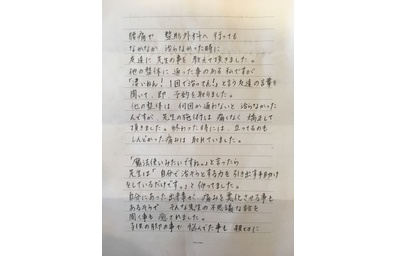 腰痛で 整形外科へ 行っても
なかなか 治らなかった時に
友達に 先生の事を 教えて頂きました。
他の整体に 通った事のある 私ですが
「凄いわよ! 1回で治ったよ!」と言う友達の言葉を
聞いて、即 予約を取りました。
他の整体は 何回か通わないと 治らなかった
んですが、先生の施術は 痛くなく 横まして
頂きました。終わった時には、立ってるのも
しんどかった痛みは 取れていました。
「魔法使いみたいですね。」と言ったら
先生は「自分で治そうとする力を引き出す手助け
をしているだけです。」と仰ってました。
自分にあった出来事が 痛みを悪化させる事も
あるそうで そんな先生の不思議な話を
聞く事も 癒されました。
子供の事や 悩んでた事も 親切に